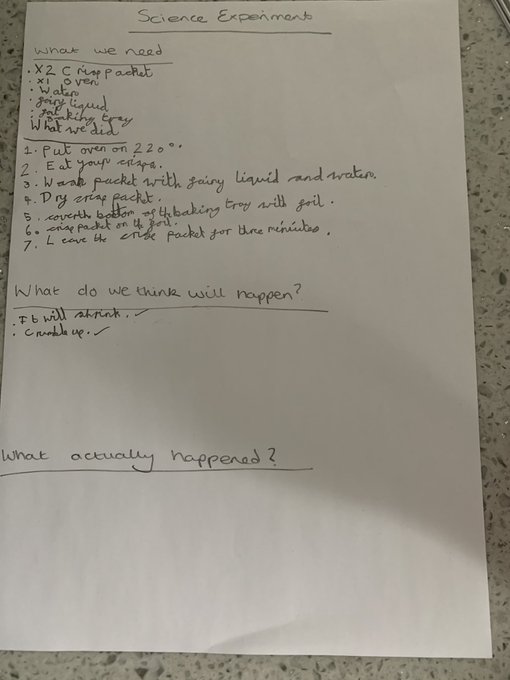 Science Experiment
What we need
. X2 Crisp packet
. X1 oven
. Water
. fairy liquid
. foil
. baking tray
What we did
1. Put oven on 220°.
2. Eat your crisps.
3. Wash packet with fairy liquid and water.
4. Dry crisp packet.
5. cover the bottom of the baking tray with foil.
6. crisp packet on the foil.
7. Leave the crisp packet for three minutes.
What do we think will happen?
. It will shrink. ✓
. Crumble up. ✓
What actually happened?